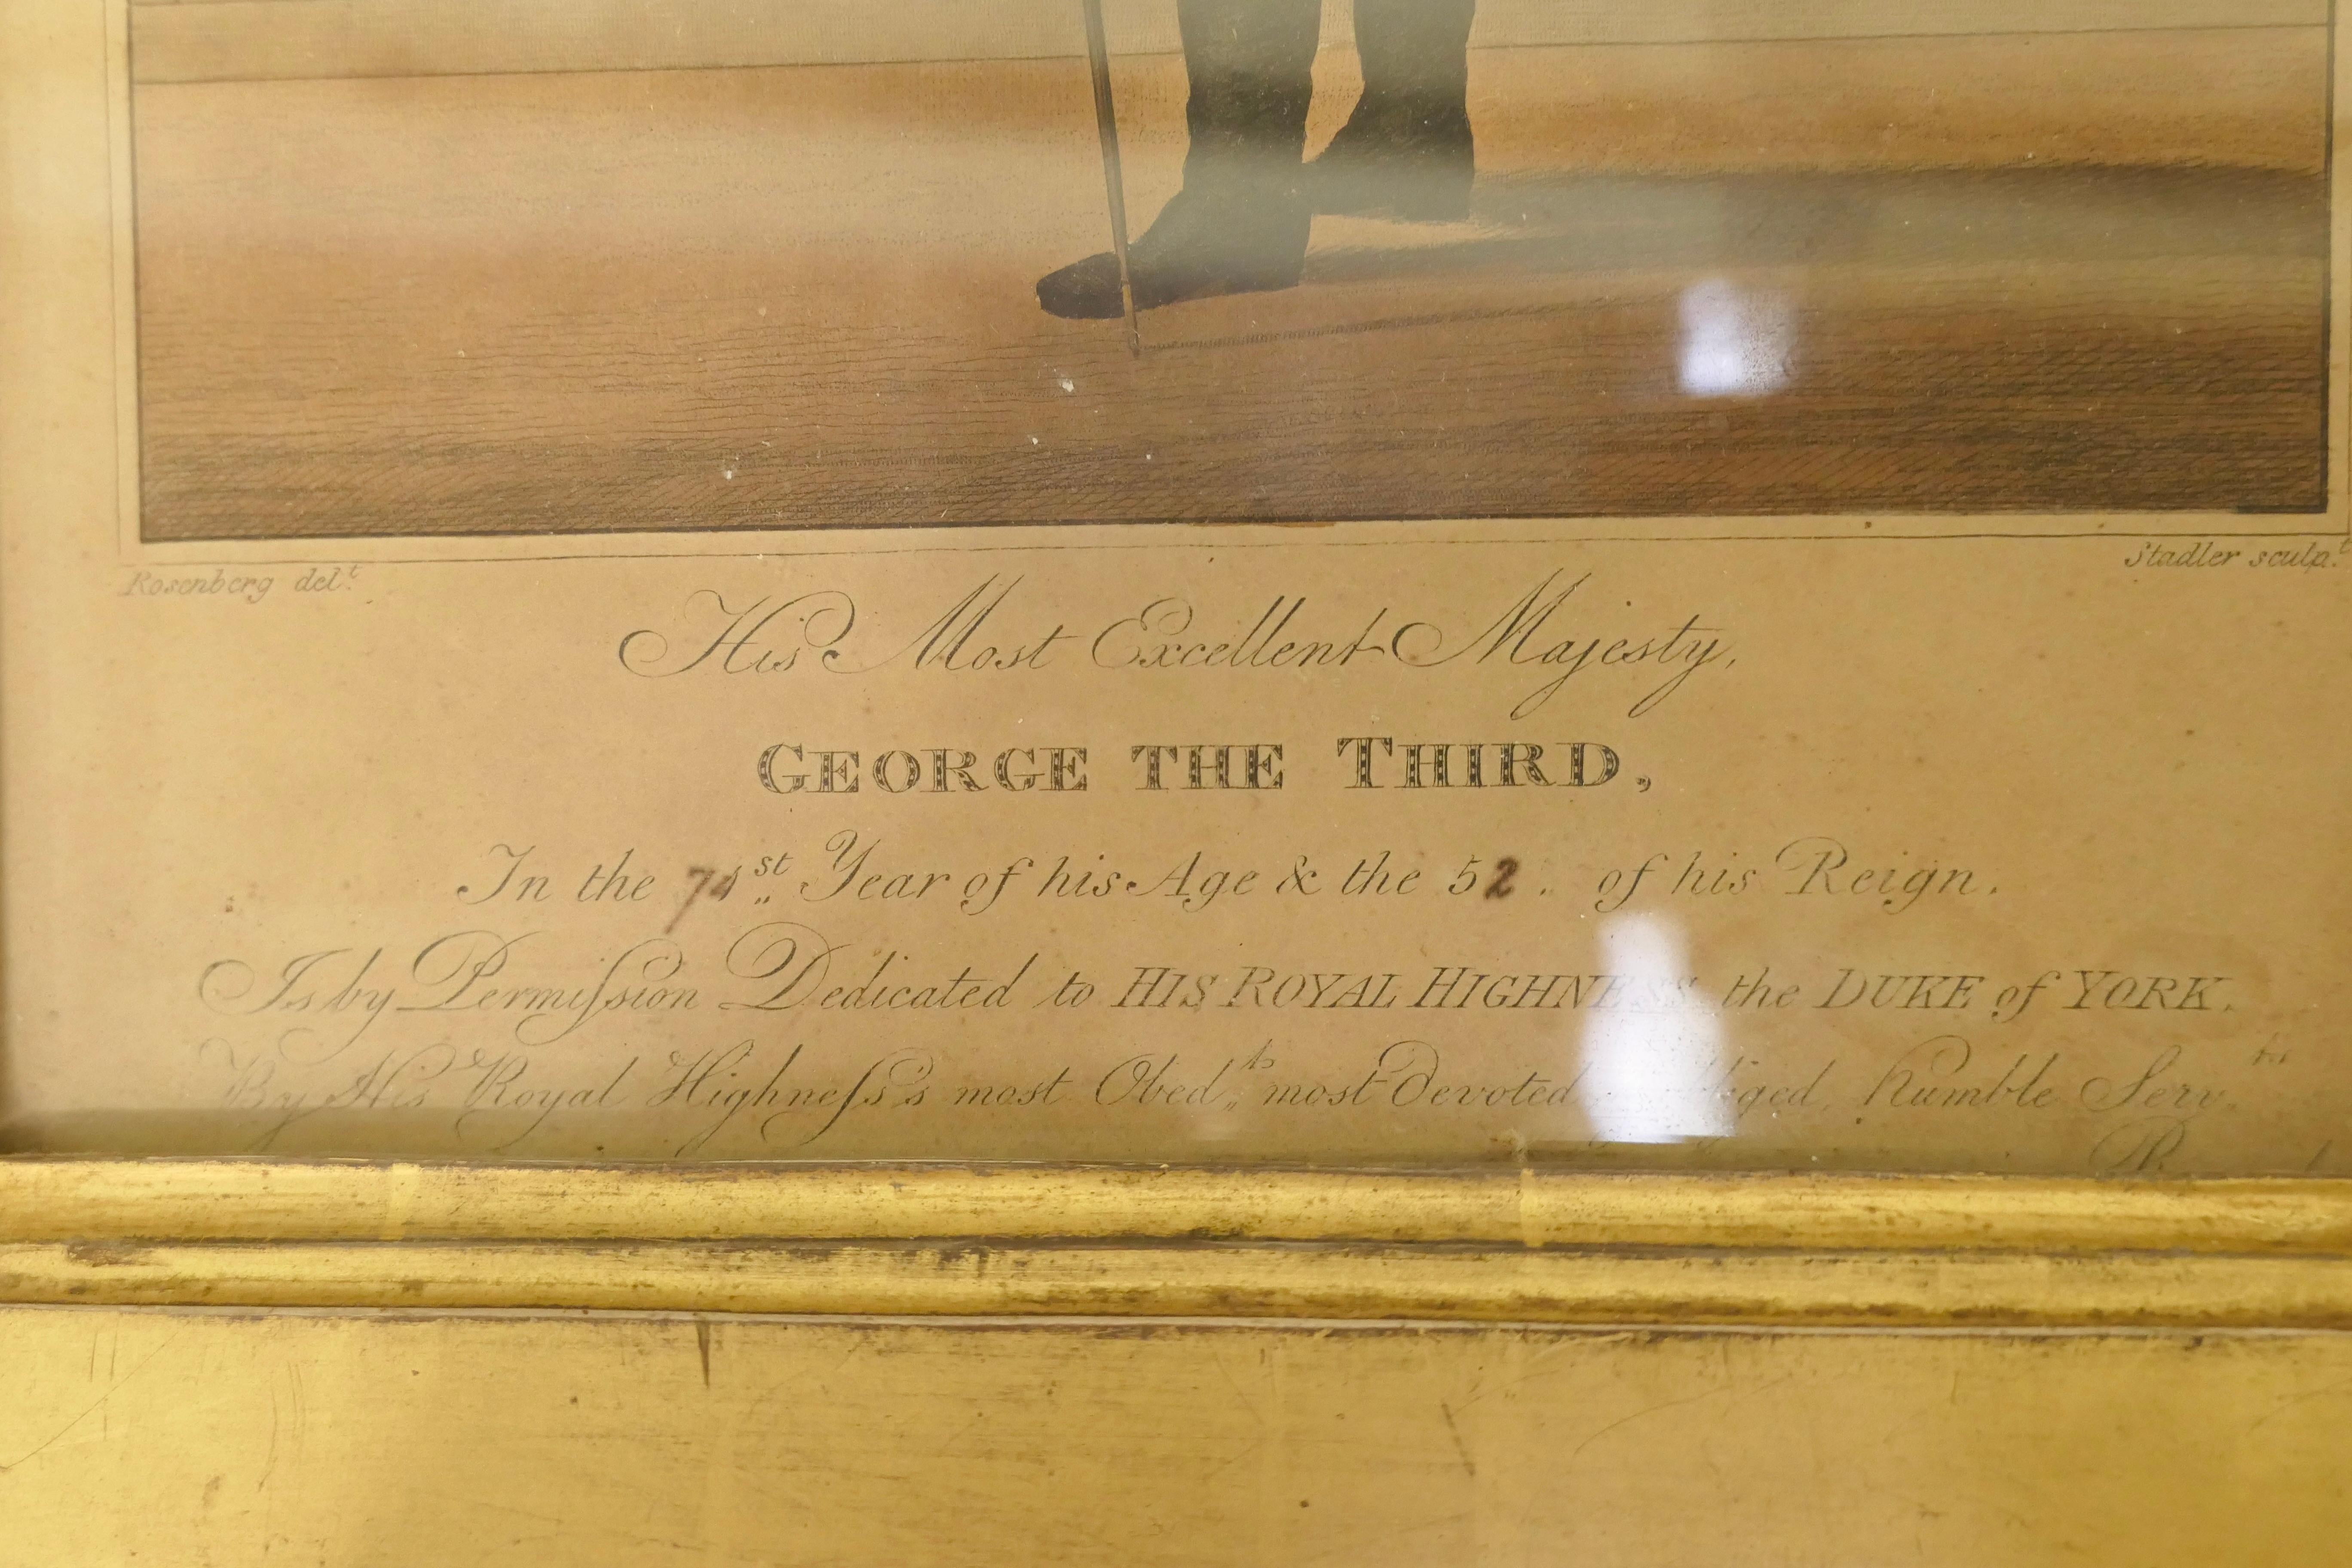 Rosenberg del.t Stadler sculp.t
His Most Excellent Majesty,
GEORGE THE THIRD,
In the 71st Year of his Age & the 52 . of his Reign.
Is by Permiſsion Dedicated to HIS ROYAL HIGHNESS the DUKE of YORK.
By His Royal Highneſs's most Obed.ts most devoted humble Serv.